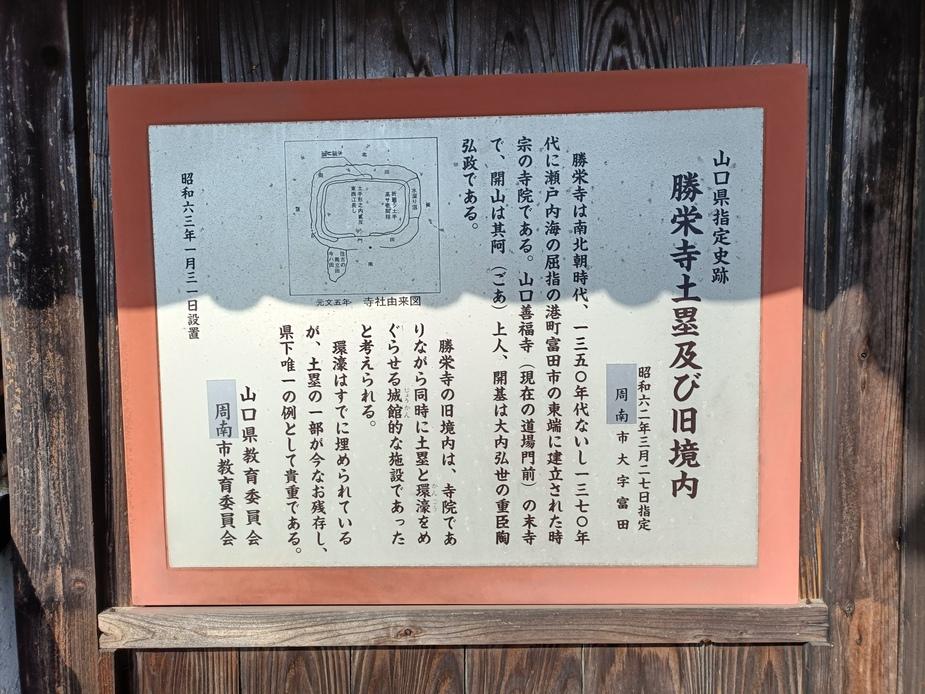 山口県指定史跡
勝栄寺土塁及び旧境内
昭和六二年三月二七日指定
周南市大字富田
勝栄寺は南北朝時代、一三五〇年代ないし一三七〇年
代に瀬戸内海の屈指の港町富田市の東端に建立された時
宗の寺院である。山口善福寺（現在の道場門前）の末寺
で、開山は其阿（ごあ）上人、開基は大内弘世の重臣陶
弘政である。
元文五年 寺社由来図
勝栄寺の旧境内は、寺院であ
りながら同時に土塁と環濠をめ
ぐらせる城館的な施設であった
じょうかん
と考えられる。
環濠はすでに埋められている
が、土塁の一部が今なお残存し、
県下唯一の例として貴重である。
山口県教育委員会
周南市教育委員会
昭和六三年一月三一日設置